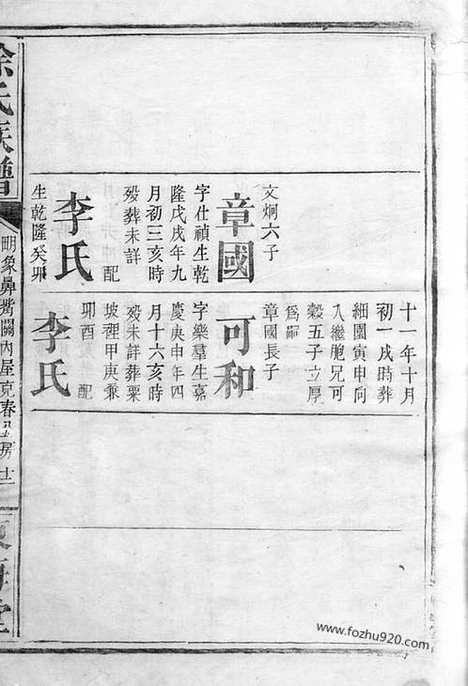 文炯六子
章國
字仕禎生乾
隆戊戌年九
月初三亥時
歿葬未詳
配
李氏
生乾隆癸卯
十一年十月
初一戌時葬
細園寅申向
入繼胞兄可
穀五子立厚
爲嗣
章國長子
可和
字樂羣生嘉
慶庚申年四
月十六亥時
歿未詳葬栗
坡裡甲庚兼
卯酉 配
李氏
徐氏族譜
明象鼻嘴闗內屋克春
東海堂
www.fozhu920.com